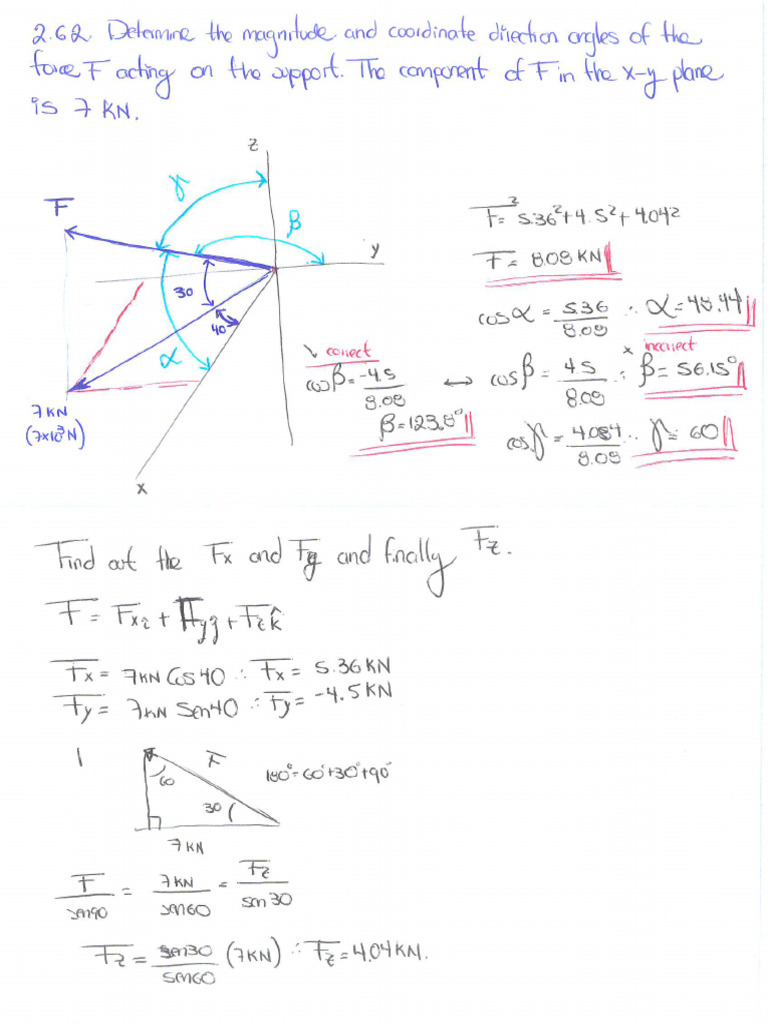 2.62. Determine the magnitude and coordinate direction angles of the
force F acting on the support. The component of F in the x-y plane
is 7 KN.
z
γ
F
β
y
30
40
α
7KN
(7x10³N)
x
F²= 5.36²+4.5²+4.04²
F = 8.08 KN
cosα = 5.36/8.08 ∴ α=48.44
↘ correct
cosβ = -4.5/8.08 ↔ cosβ = 4.5/8.08 ∴ β = 56.15°
x incorrect
β=123.8°
cosγ = 4.084/8.08 ∴ γ = 60
Find out the Fx and Fy and finally Fz.
F = Fxi + Fyj + Fzk̂
Fx = 7KN Cos40 ∴ Fx = 5.36 KN
Fy = 7KN Sen40 ∴ Fy = -4.5 KN
F
60
180°=60°+30°+90°
30
7KN
F/sen90 = 7KN/sen60 = Fz/sen30
Fz = sen30/sen60 (7KN) ∴ Fz=4.04KN.